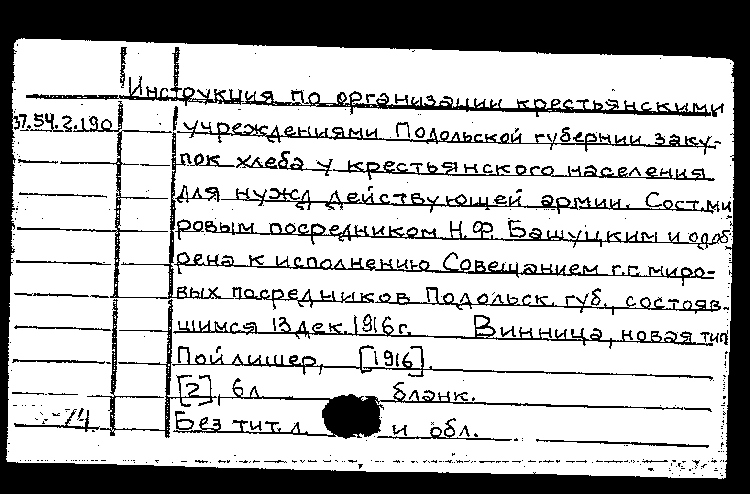 Инструкция по организации крестьянскими
37.54.2.190 учреждениями Подольской губернии заку-
пок хлеба у крестьянского населения
для нужд действующей армии. Сост. ми
ровым посредником Н.Ф. Башуцким и одоб
рена к исполнению Совещанием г.г. миро-
вых посредников Подольск. губ., состояв
шимся 13 дек. 1916 г. Винница, новая тип
Пойлишер, [1916].
[2], 6 л бланк.
-74 Без тит. л. и обл.